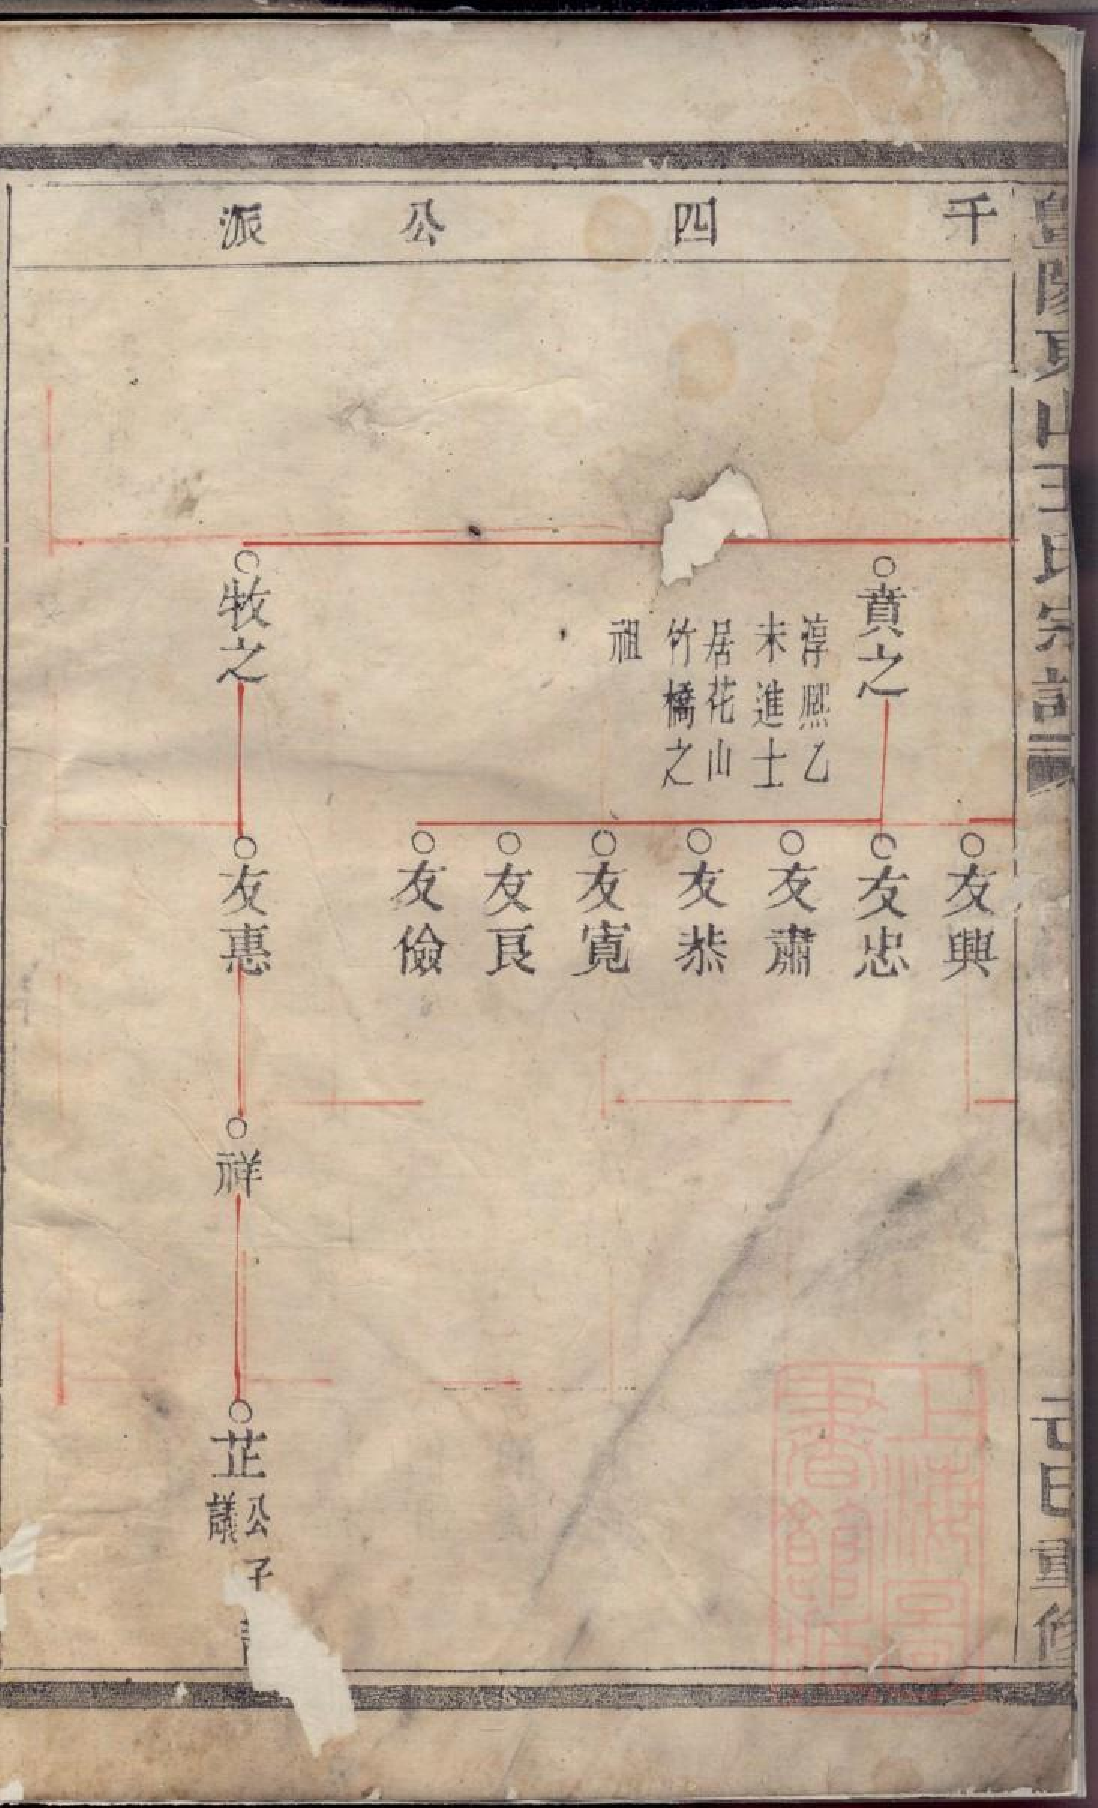 千四公派
山王氏宗譜
重修
賁之
淳熙乙
未進士
居花山
竹橋之
祖
牧之
友興
友忠
友肅
友恭
友寬
友良
友儉
友惠
祥
芷
公子
議
上海圖
書館藏